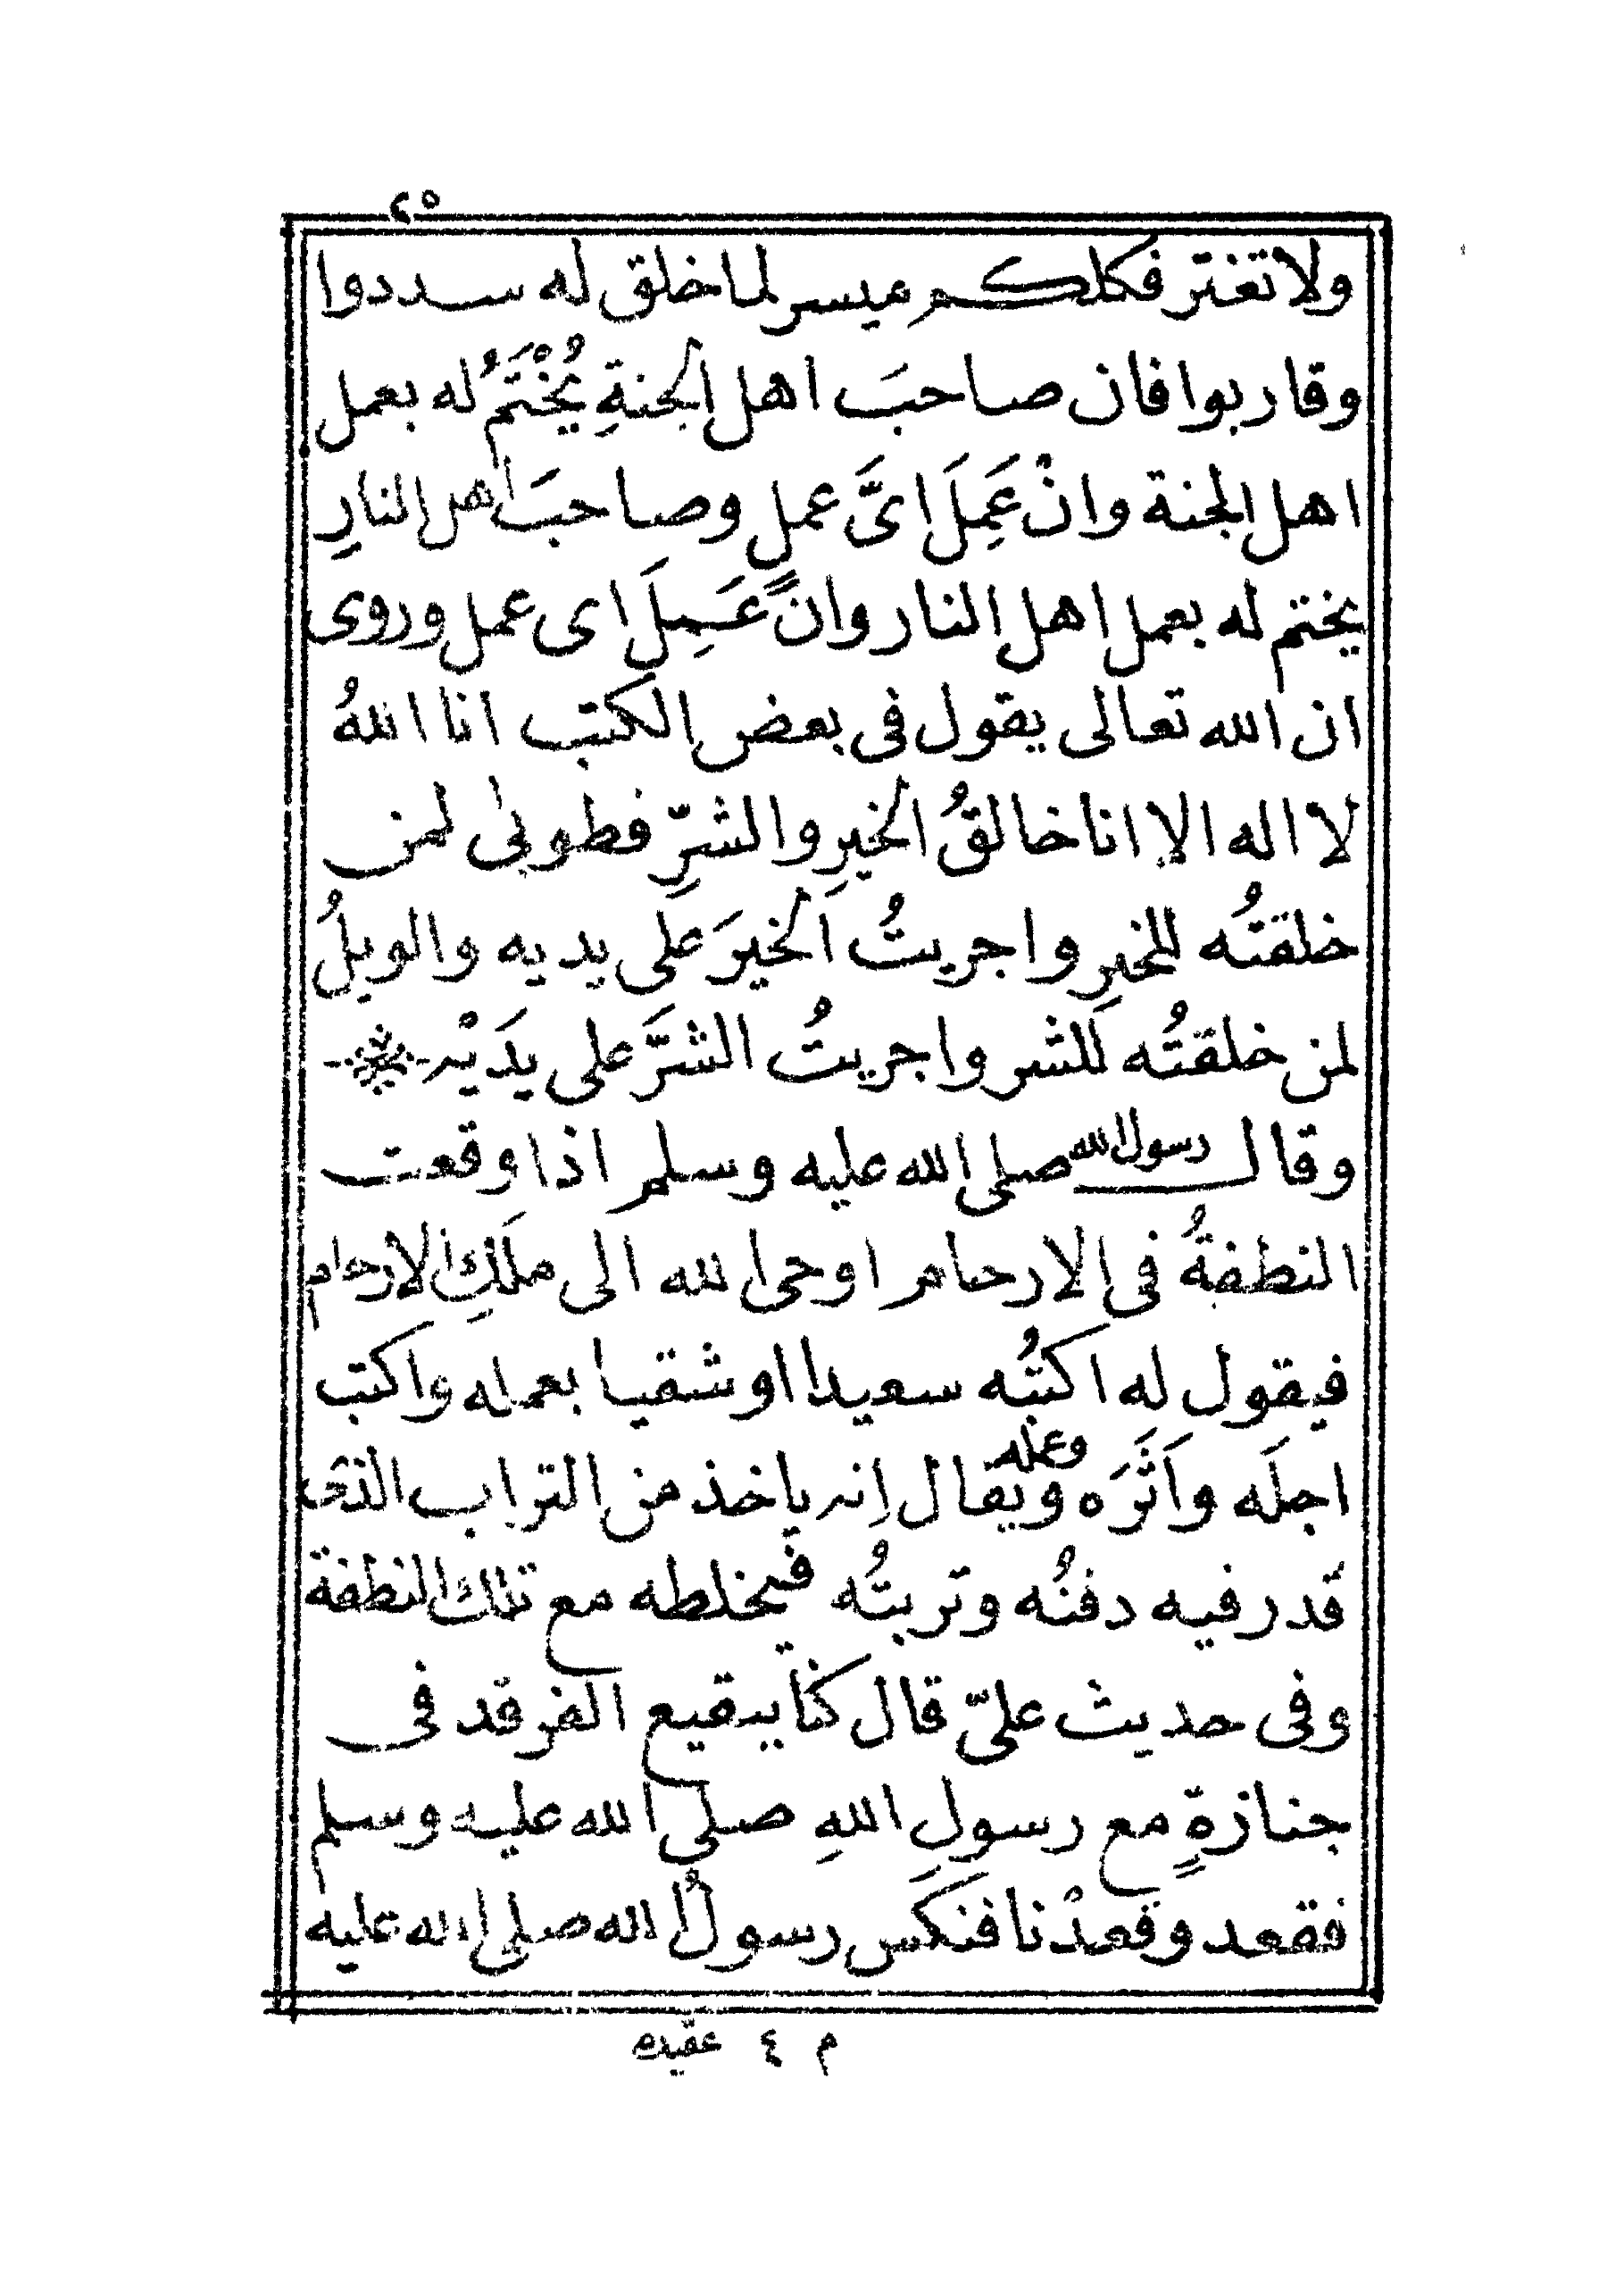 ٢٥
ولا تغتر فكلكم ميسر لما خلق له سددوا
وقاربوا فان صاحبَ اهل الجنةِ يُخْتَمُ له بعمل
اهل الجنة وانْ عَمِلَ اىَّ عملٍ وصاحبَ اهل النارِ
يختم له بعمل اهل النار وانْ عَمِلَ اى عمل وروى
ان الله تعالى يقول فى بعض الكتب انا اللهُ
لا اله الا انا خالقُ الخيرِ والشرِّ فطوبى لمن
خلقتُه للخيرِ واجريتُ الخيرَ على يديه والويلُ
لمن خلقتُه للشر واجريتُ الشرَّ على يدَيْه
وقال رسول الله صلى الله عليه وسلم اذا وقعت
النطفةُ فى الارحام اوحى الله الى ملَكِ الارحام
فيقول له اكتبُه سعيدا او شقيا بعمله واكتب
اجلَه واَثَرَه وعمله ويقال اِنه ياخذ من التراب الذى
قدر فيه دفنُه وتربتُه فيخلطه مع تلك النطفة
وفى حديث علىّ قال كنا ببقيع الغرقد فى
جنازةٍ مع رسول اللهِ صلى الله عليه وسلم
فقعد وقعدْنا فنكَس رسولُ الله صلى الله عليه
م ٤ عقيده